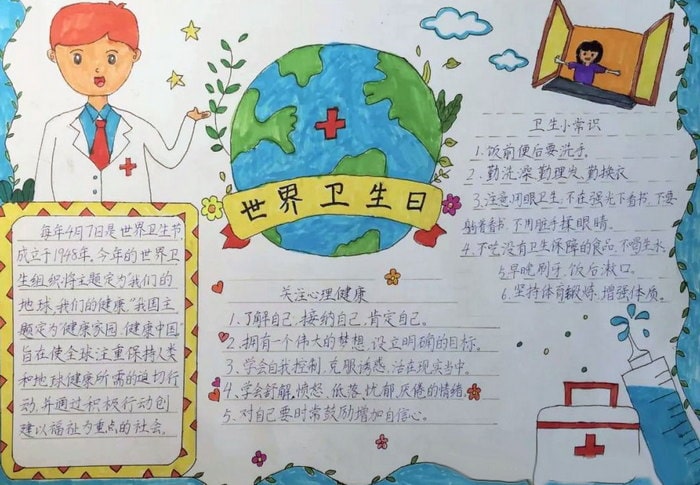 世界卫生日
每年4月7日是世界卫生节,
成立于1948年,今年的世界卫
生组织将主题定为"我们的
地球,我们的健康."我国主
题定为"健康家园,健康中国"
旨在使全球注重保持人类
和地球健康所需的迫切行
动,并通过积极行动创
建以福祉为重点的社会。
关注心理健康
1、了解自己,接纳自己,肯定自己。
2、拥有一个伟大的梦想,设立明确的目标。
3、学会自我控制,克服诱惑,活在现实当中。
4、学会舒解,愤怒、低落、忧郁、厌倦的情绪。
5、对自己要时常鼓励增加自信心。
卫生小常识
1.饭前便后要洗手。
2.勤洗澡,勤理发,勤换衣
3.注意用眼卫生,不在强光下看书,不要
躺着看书,不用脏手揉眼睛。
4.不吃没有卫生保障的食品,不喝生水。
5早晚刷牙,饭后漱口。
6.坚持体育锻炼,增强体质。